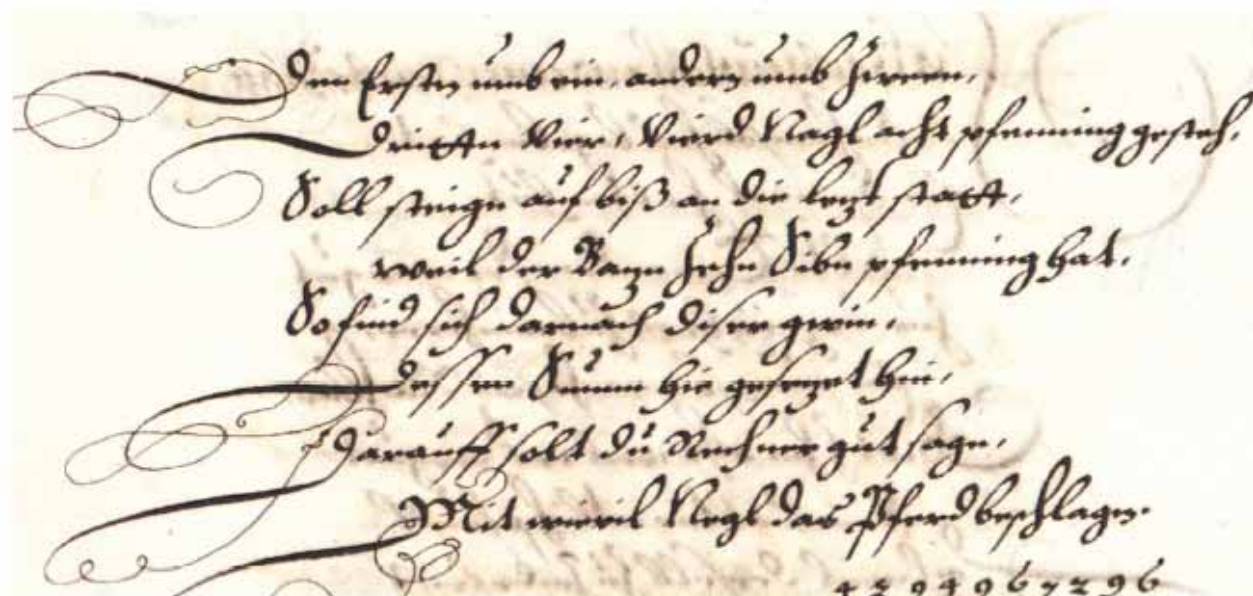 Den Ersten umb ein, andern umb Zween,
Dritten Vier, Vierd Nagl acht pfenning gesteh,
Soll steign auf biß an die lezt statt,
weil der Bazn Zehn Sibn pfenning hat.
So find sich darnach diser gwin,
dessen Summ hie gesezet hin,
Darauff solt du Rechner gut sagn,
Mit wievil Negl das Pferd beschlagen.
4 2 9 4 9 6 7 2 9 6